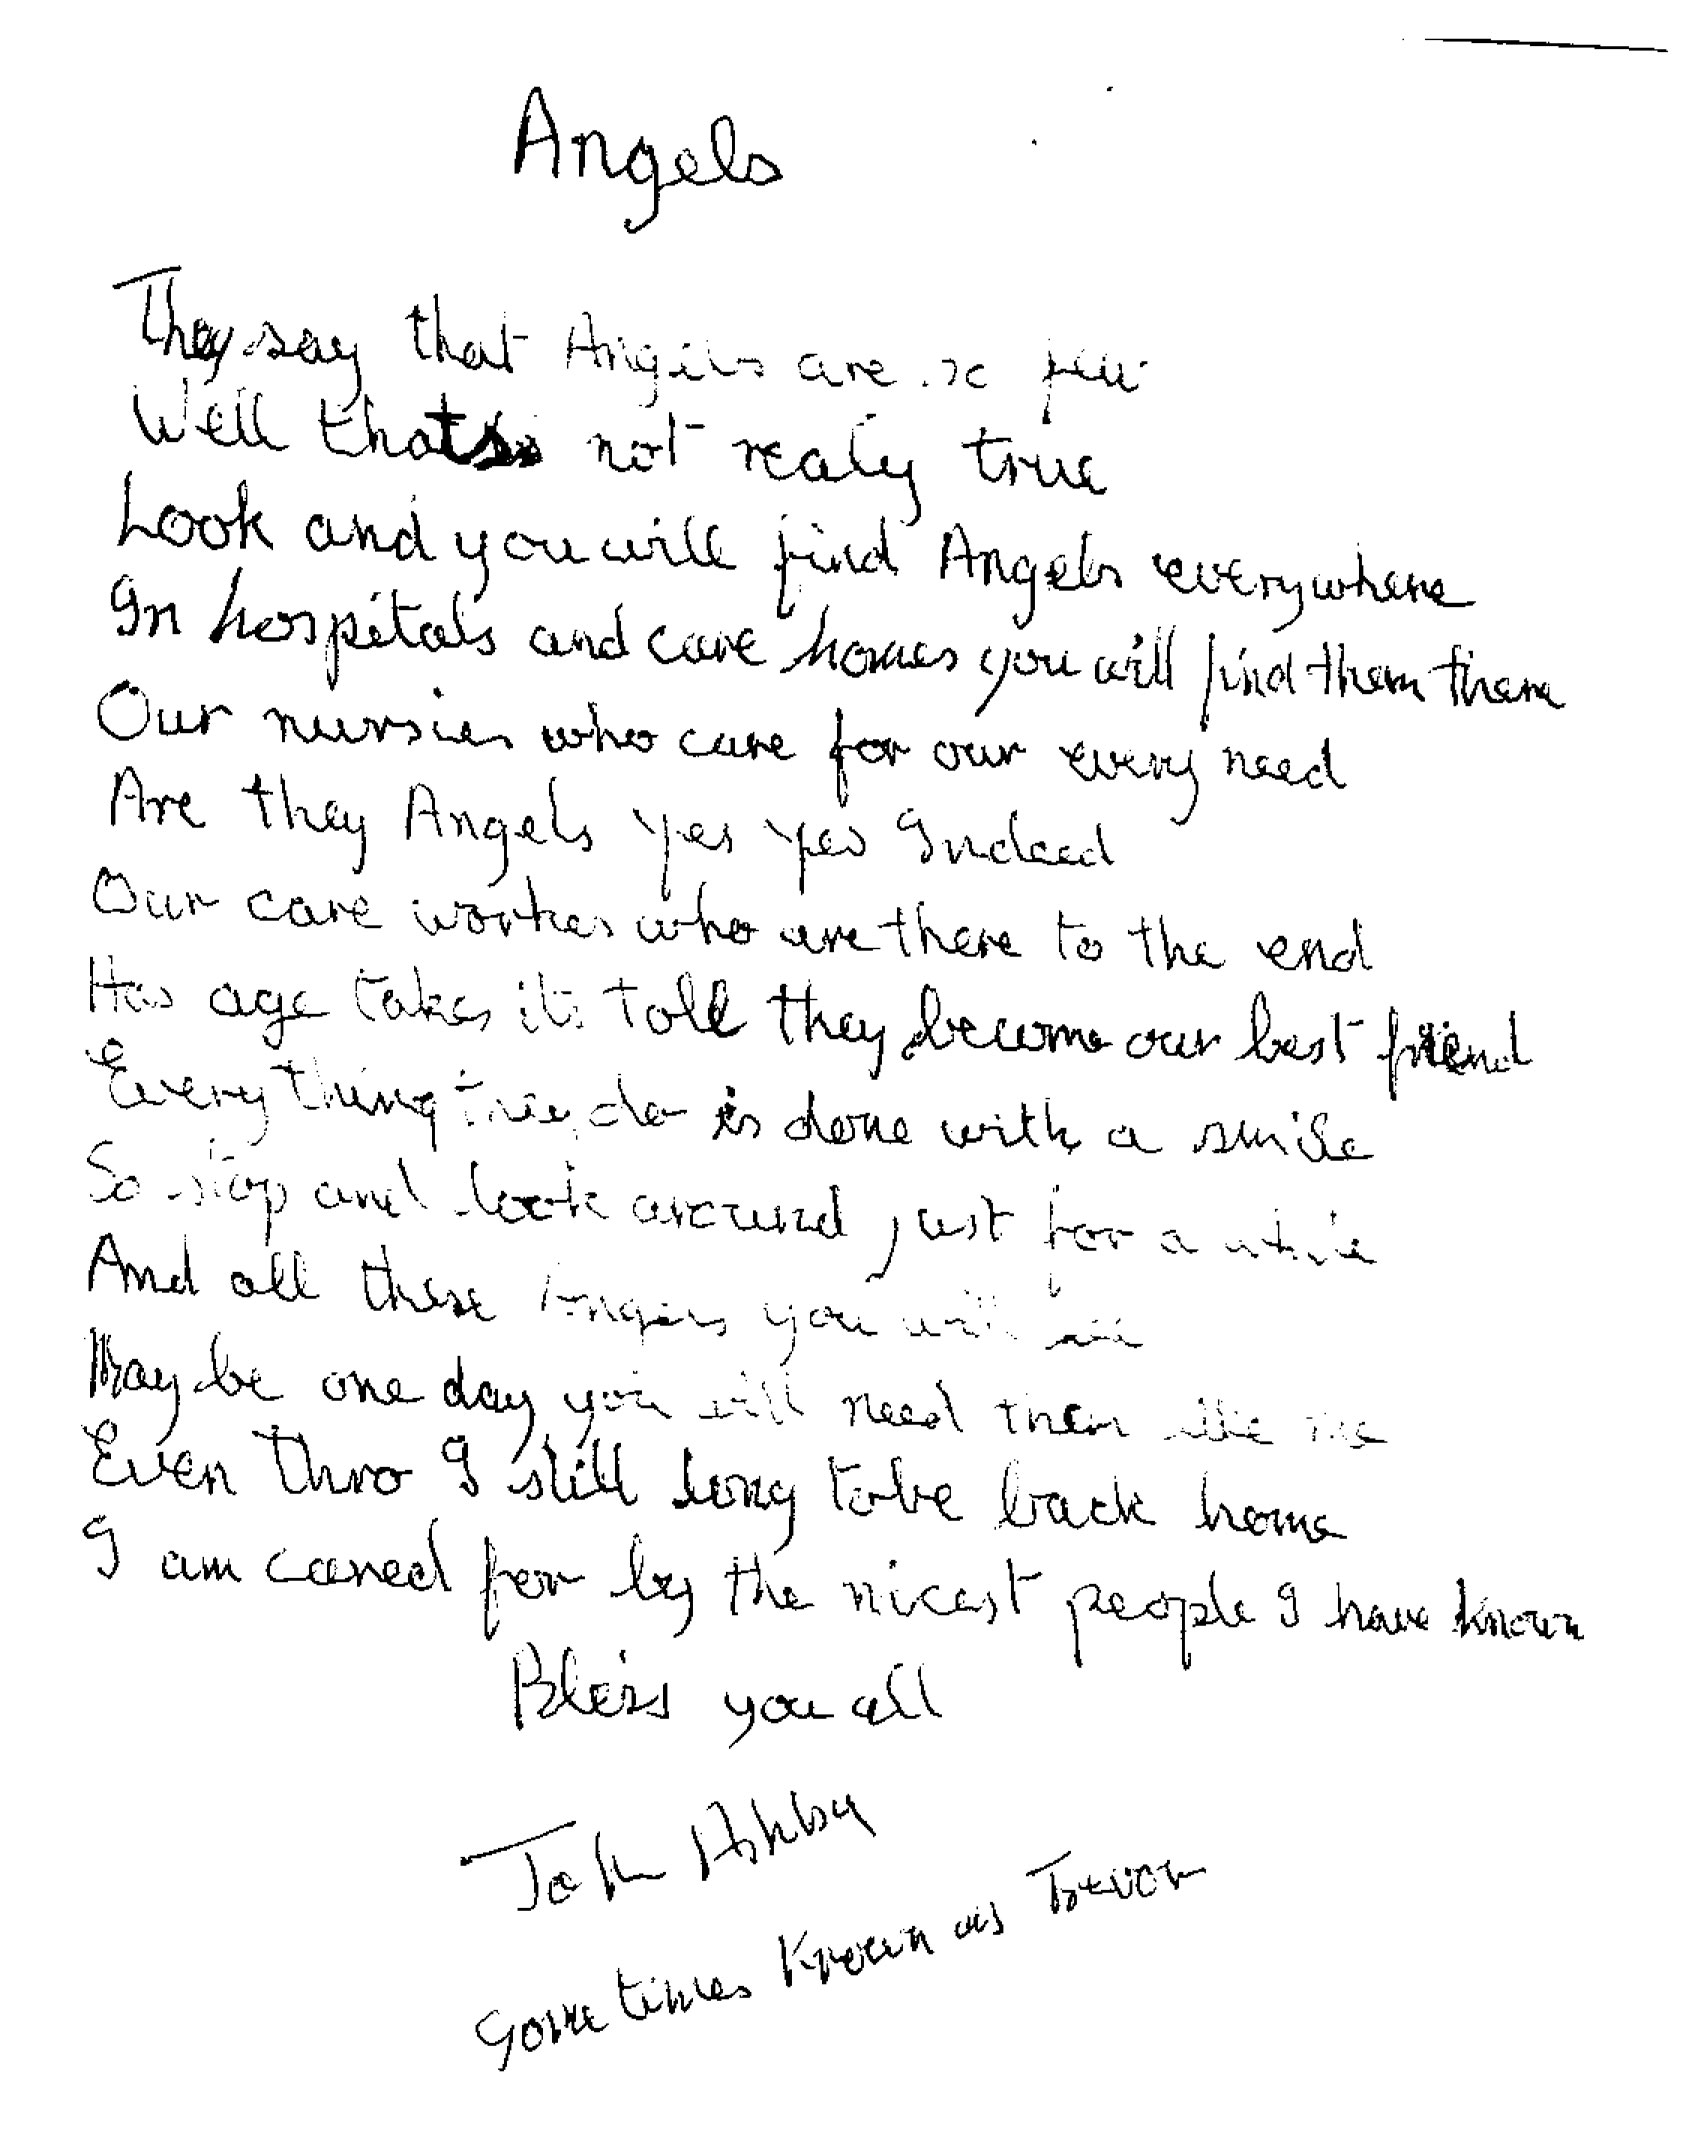 Angels
They say that Angels are so few
Well thats not realy true
Look and you will find Angels everywhere
In hospitals and care homes you will find them there
Our nursies who care for our every need
Are they Angels yes yes Indeed
Our care workes who are there to the end
Has age takes its toll they become our best friend
Every thing they do is done with a smile
So stop and look around just for a while
And all these Angels you will see
May be one day you will need them like me
Even thro I still long to be back home
I am cared for by the nicest people I have known
Bless you all
John Ashby
Some times Known as Trevor